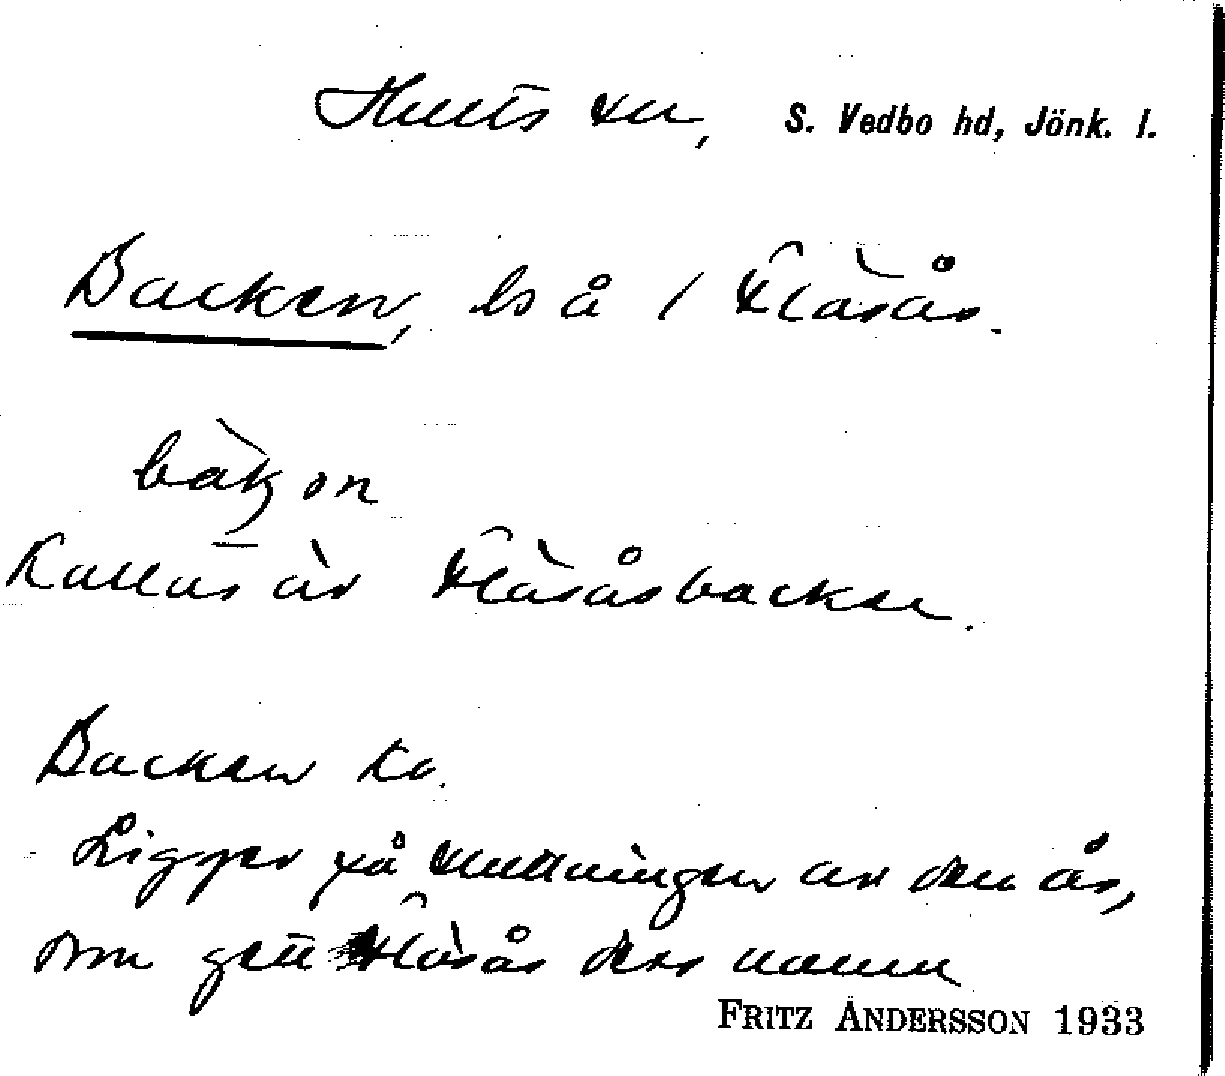 Hults sn, S. Vedbo hd, Jönk. l.
Backen, ls å / Fläsås.
bàkon
Kallas äv Fläsåsbacken.
Backen ko.
Ligger på sluttningen av den ås,
som gett Fläsås dess namn
FRITZ ANDERSSON 1933